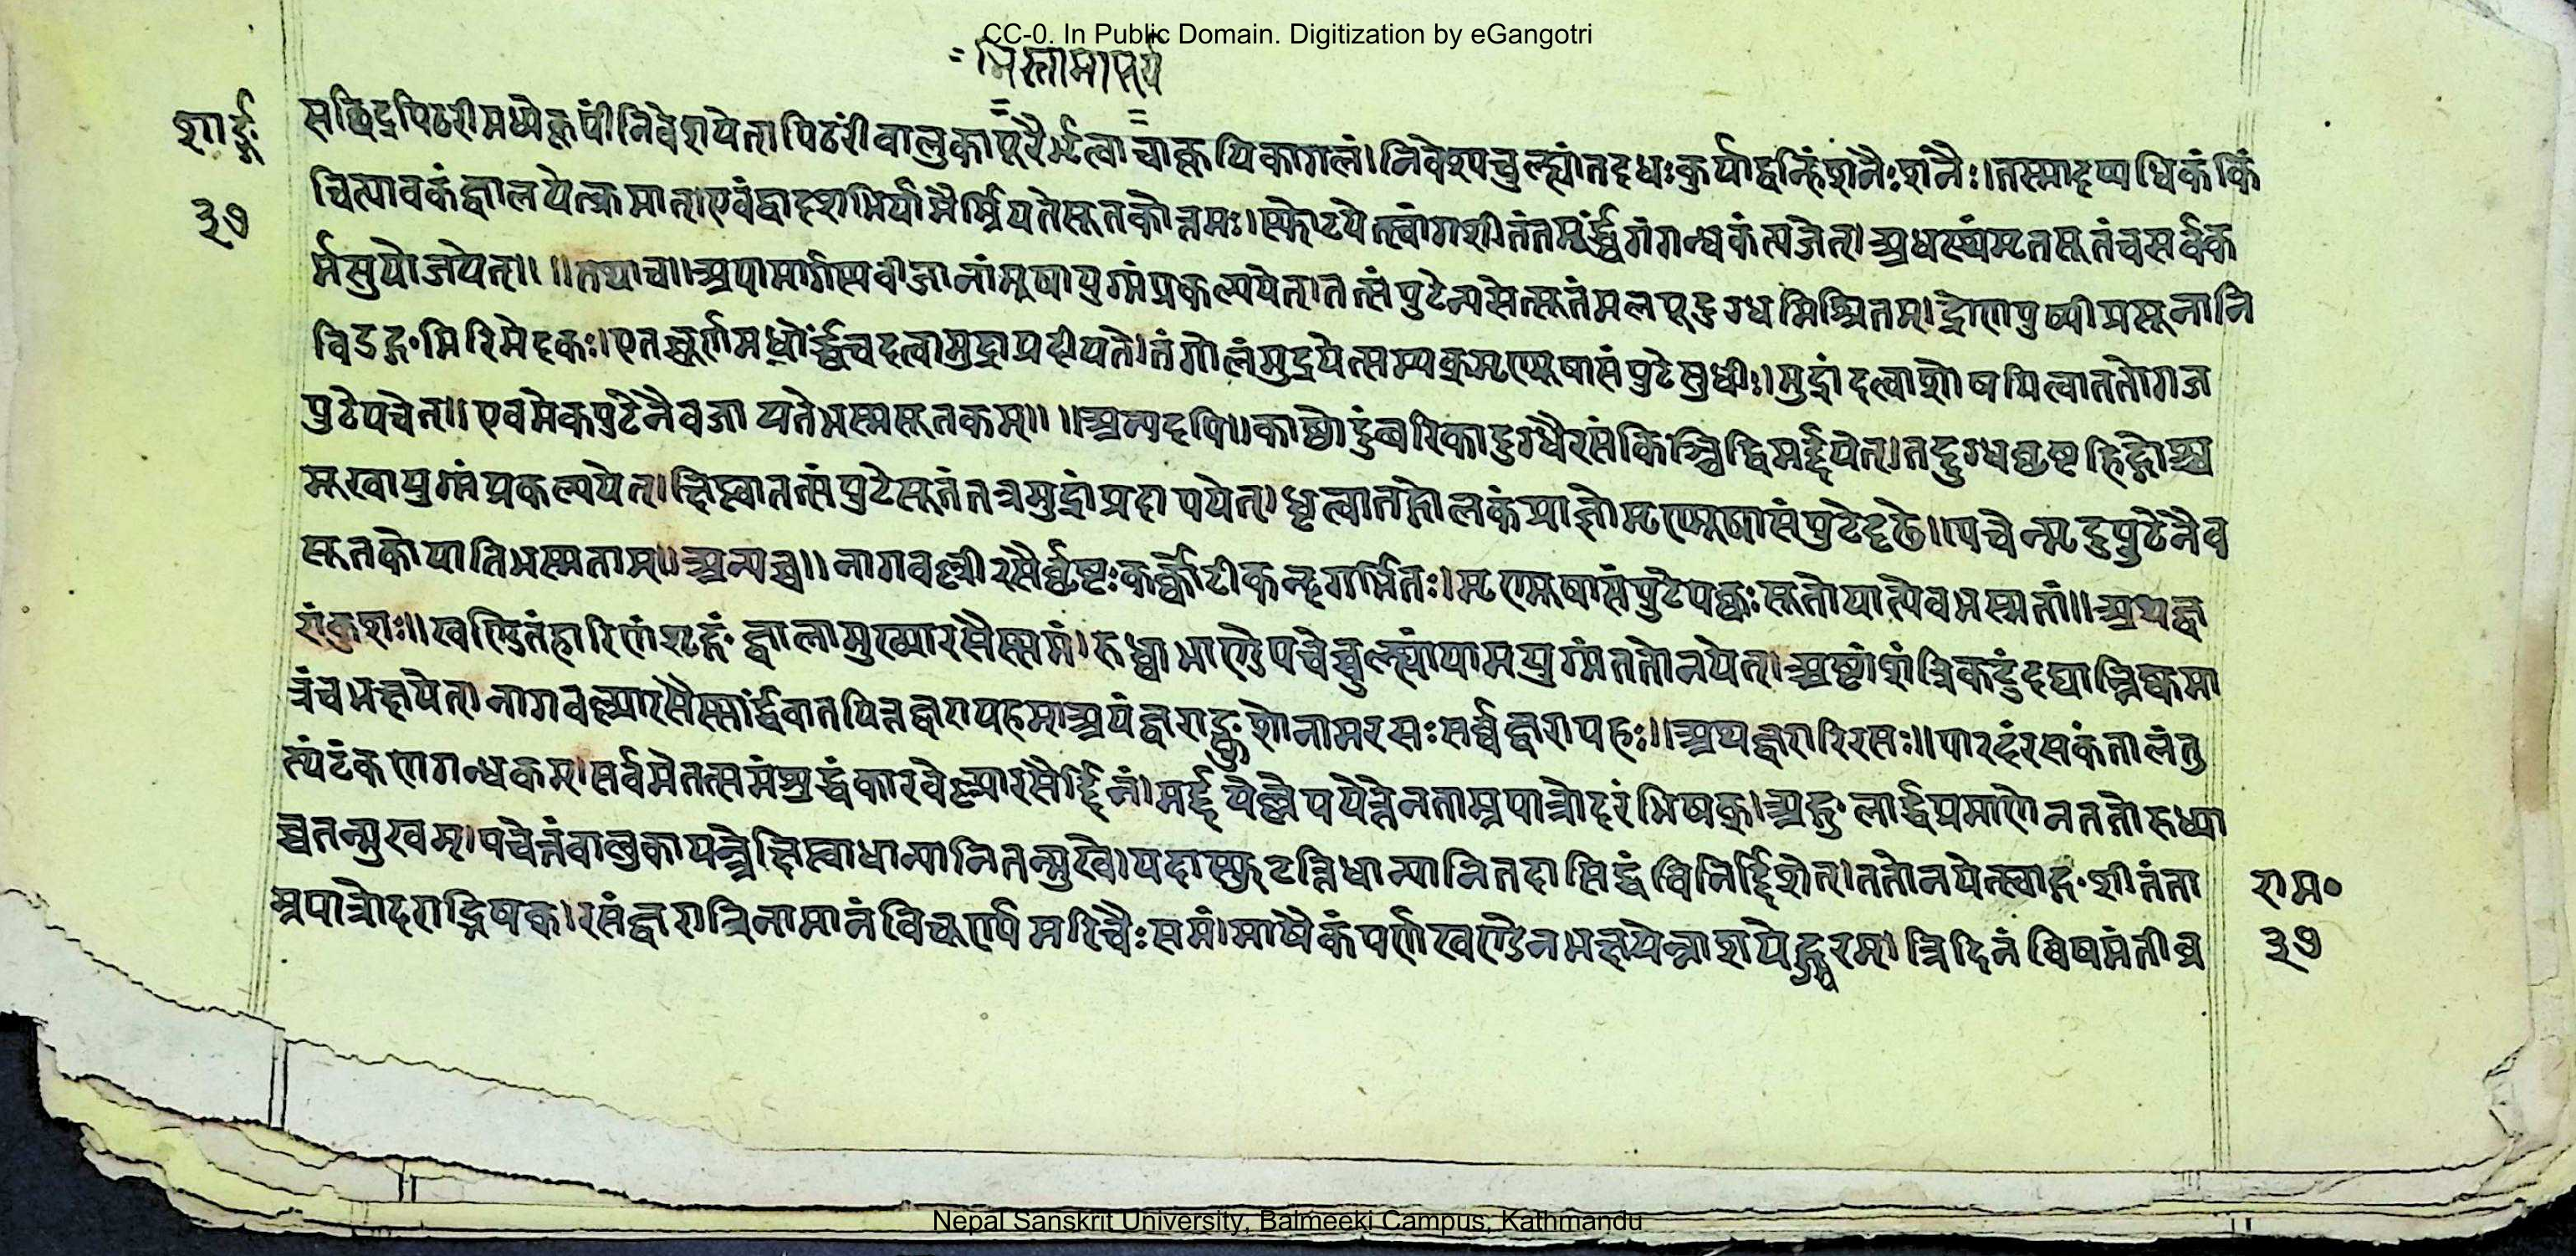 CC-0. In Public Domain. Digitization by eGangotri
शार्ङ्ग
३७
सछिद्रपिठरीमध्येकूपींनिवेशयेत्।पिठरींवालुकापूरैर्भृत्वाचाकूपिकागलं।निवेश्यचुल्ल्यांतदधःकुर्याद्वह्निंशनैःशनैः।तस्मादप्यधिकंकिं
चित्पावकंज्वालयेत्क्रमात्।एवंद्वादशभिर्यामैर्म्रियतेसूतकोत्तमः।स्फोटयेत्स्वांगशीतंतमूर्द्ध्वगंगन्धकंत्यजेत्।अधस्थंमृतसूतंचसर्वक
र्मसुयोजयेत्॥ ॥तथाच॥अपामार्गस्यवीजानांमूषायुग्मंप्रकल्पयेत्।तत्संपुटेन्यसेत्सूतंमलपूदुग्धमिश्रितम्।द्रोणपुष्पीप्रसूनानि
विडङ्गमिरिमेदकः।एतच्चूर्णमधोर्द्ध्वंचदत्वामुद्राप्रदीयते।तंगोलंमुद्रयेत्सम्यक्मृण्मूषासंपुटेसुधीः।मुद्रांदत्वाशोषयित्वाततोगज
पुटेपचेत्॥एवमेकपुटेनैवजायतेभस्मसूतकम्॥ ॥अन्यदपि॥काष्ठोदुंवरिकादुग्धैरसंकिञ्चिद्विमर्द्दयेत्।तद्दुग्धघृष्टहिङ्गोश्च
मूखायुग्मंप्रकल्पयेत्।क्षिप्त्वातत्संपुटेसूतंतत्रमुद्रांप्रदापयेत्।धृत्वातद्गोलकंप्राज्ञोमृण्मूषासंपुटेदृढे॥पचेन्मृदुपुटेनैव
सूतकोयातिभस्मताम्॥अन्यच्च॥नागवल्लीरसैर्घृष्टःकर्क्कोटीकन्दगर्भितः।मृण्मूषासंपुटेपक्वःसूतोयात्येवभस्मतां॥अथज्व
रांकुशः॥खण्डितंहारिणंशृङ्गंज्वालामुख्यारसैस्समं।रुध्वाभाण्डेपचेच्चुल्ल्यांयामयुग्मंततोनयेत्।अष्टांशंत्रिकटुंदद्यान्निष्कमा
त्रंचभक्षयेत्।नागवल्ल्यारसैस्सार्द्धंवातपित्तज्वरापहम्।अयंज्वराङ्कुशोनामरसःसर्व्वज्वरापहः॥अथज्वरारिरसः॥पारदंरसकंतालंतु
त्यंटंकणगन्धकम्।सर्वमेतत्समंशुद्धंकारवेल्ल्यारसैर्द्दिनं।मर्द्दयेल्लेपयेत्तेनताम्रपात्रोदरंभिषक्।अङ्गुलार्द्धप्रमाणेनततोरुध्वा
च्चतन्मुखम्।पचेत्तंवालुकायन्त्रेक्षिप्त्वाधान्यानितन्मुखे।यदास्फुटन्तिधान्यानितदासिद्धंविनिर्द्दिशेत्।ततोनयेत्स्वाङ्गशीतंता
म्रपात्रोदराद्भिषक।रसंज्वरारिनामानंविचूर्ण्यमरिचैःसमं।माषैकंपर्णखण्डेनभक्षयेन्नाशयेज्ज्वरम्।त्रिदिनंविषमंतीव्र
राम॰
३७
Nepal Sanskrit University, Balmeeki Campus, Kathmandu